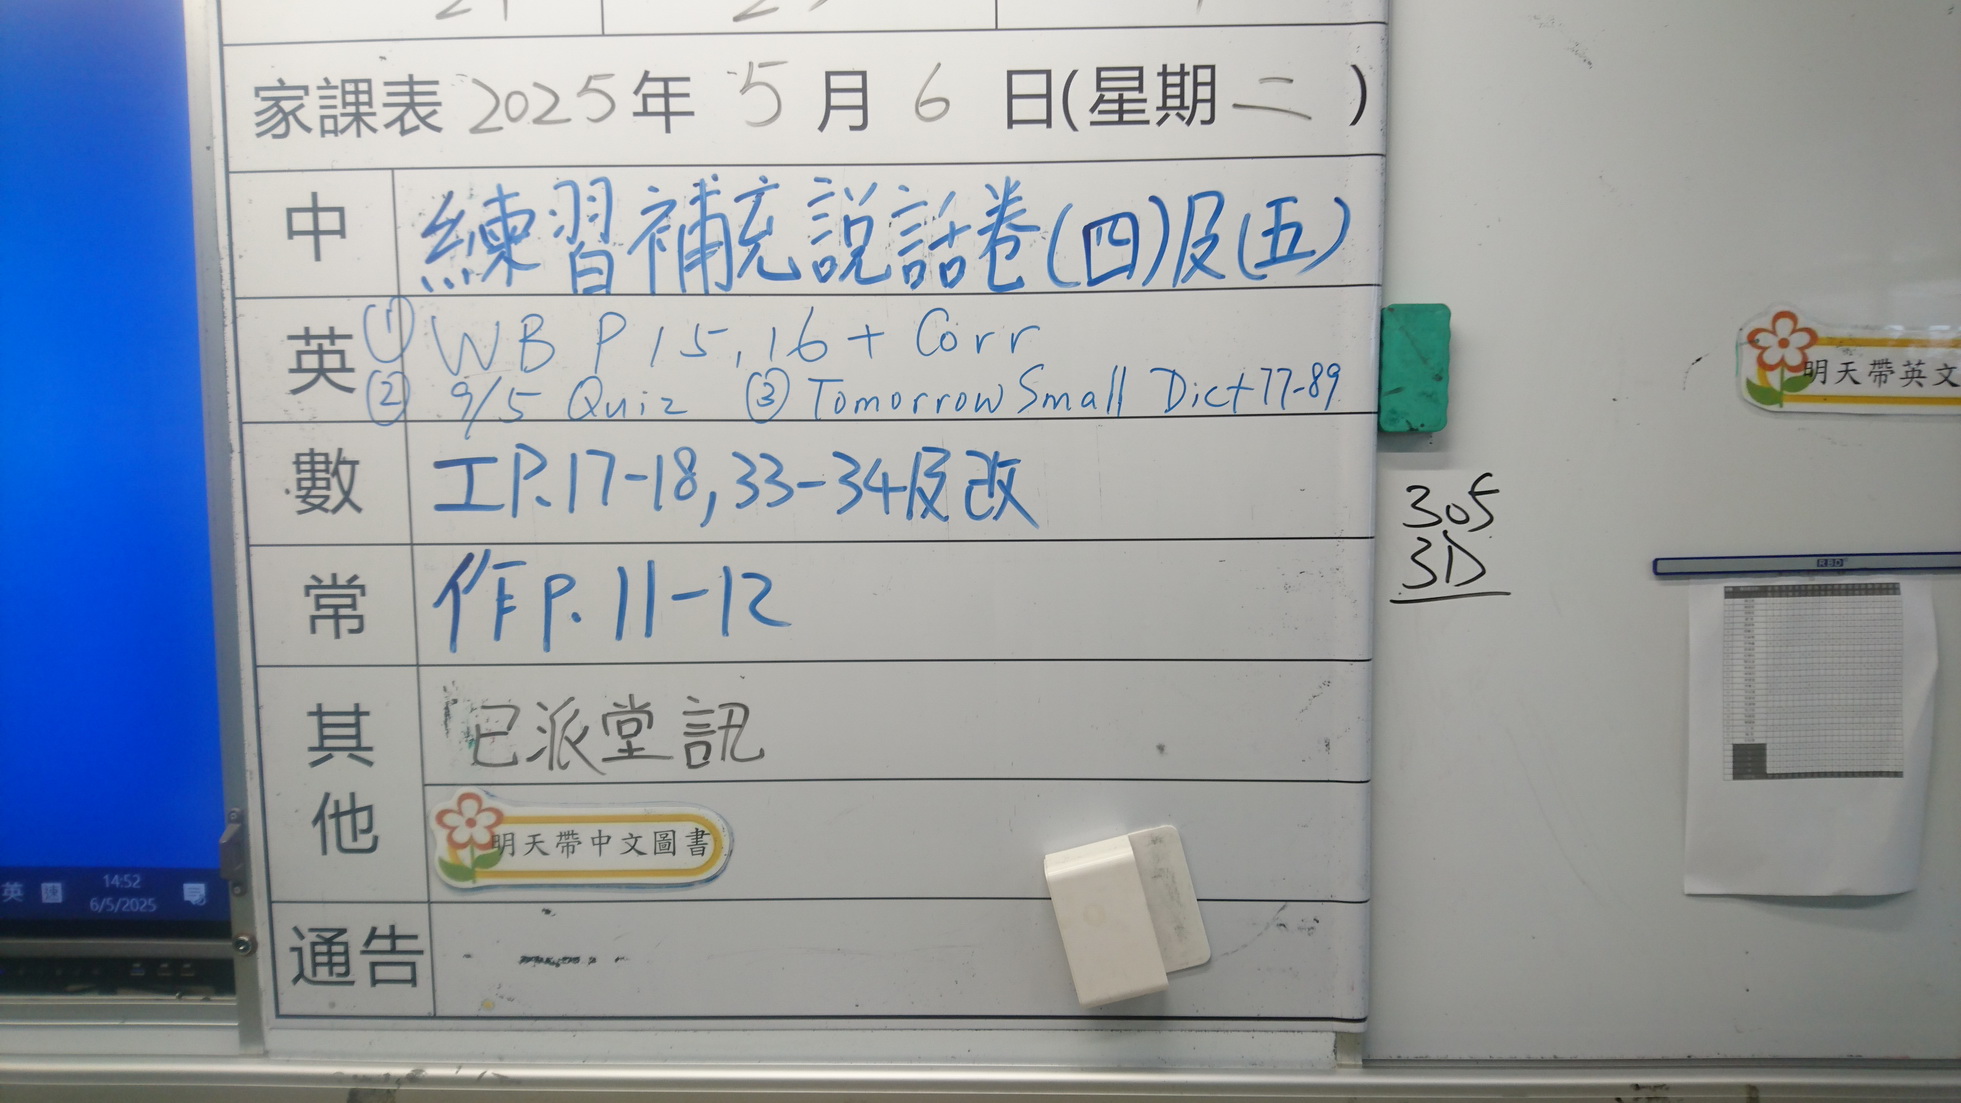 家課表 2025年 5月 6日(星期二)
中 練習補充說話卷(四)及(五)
英 (1) WB P 15, 16 + Corr
② 9/5 Quiz ③ Tomorrow Small Dict 77-89
數 工P.17-18, 33-34及改
常 作P. 11-12
其他 已派堂訊
明天帶中文圖書
通告
305
3D
明天帶英文
英
14:52
6/5/2025